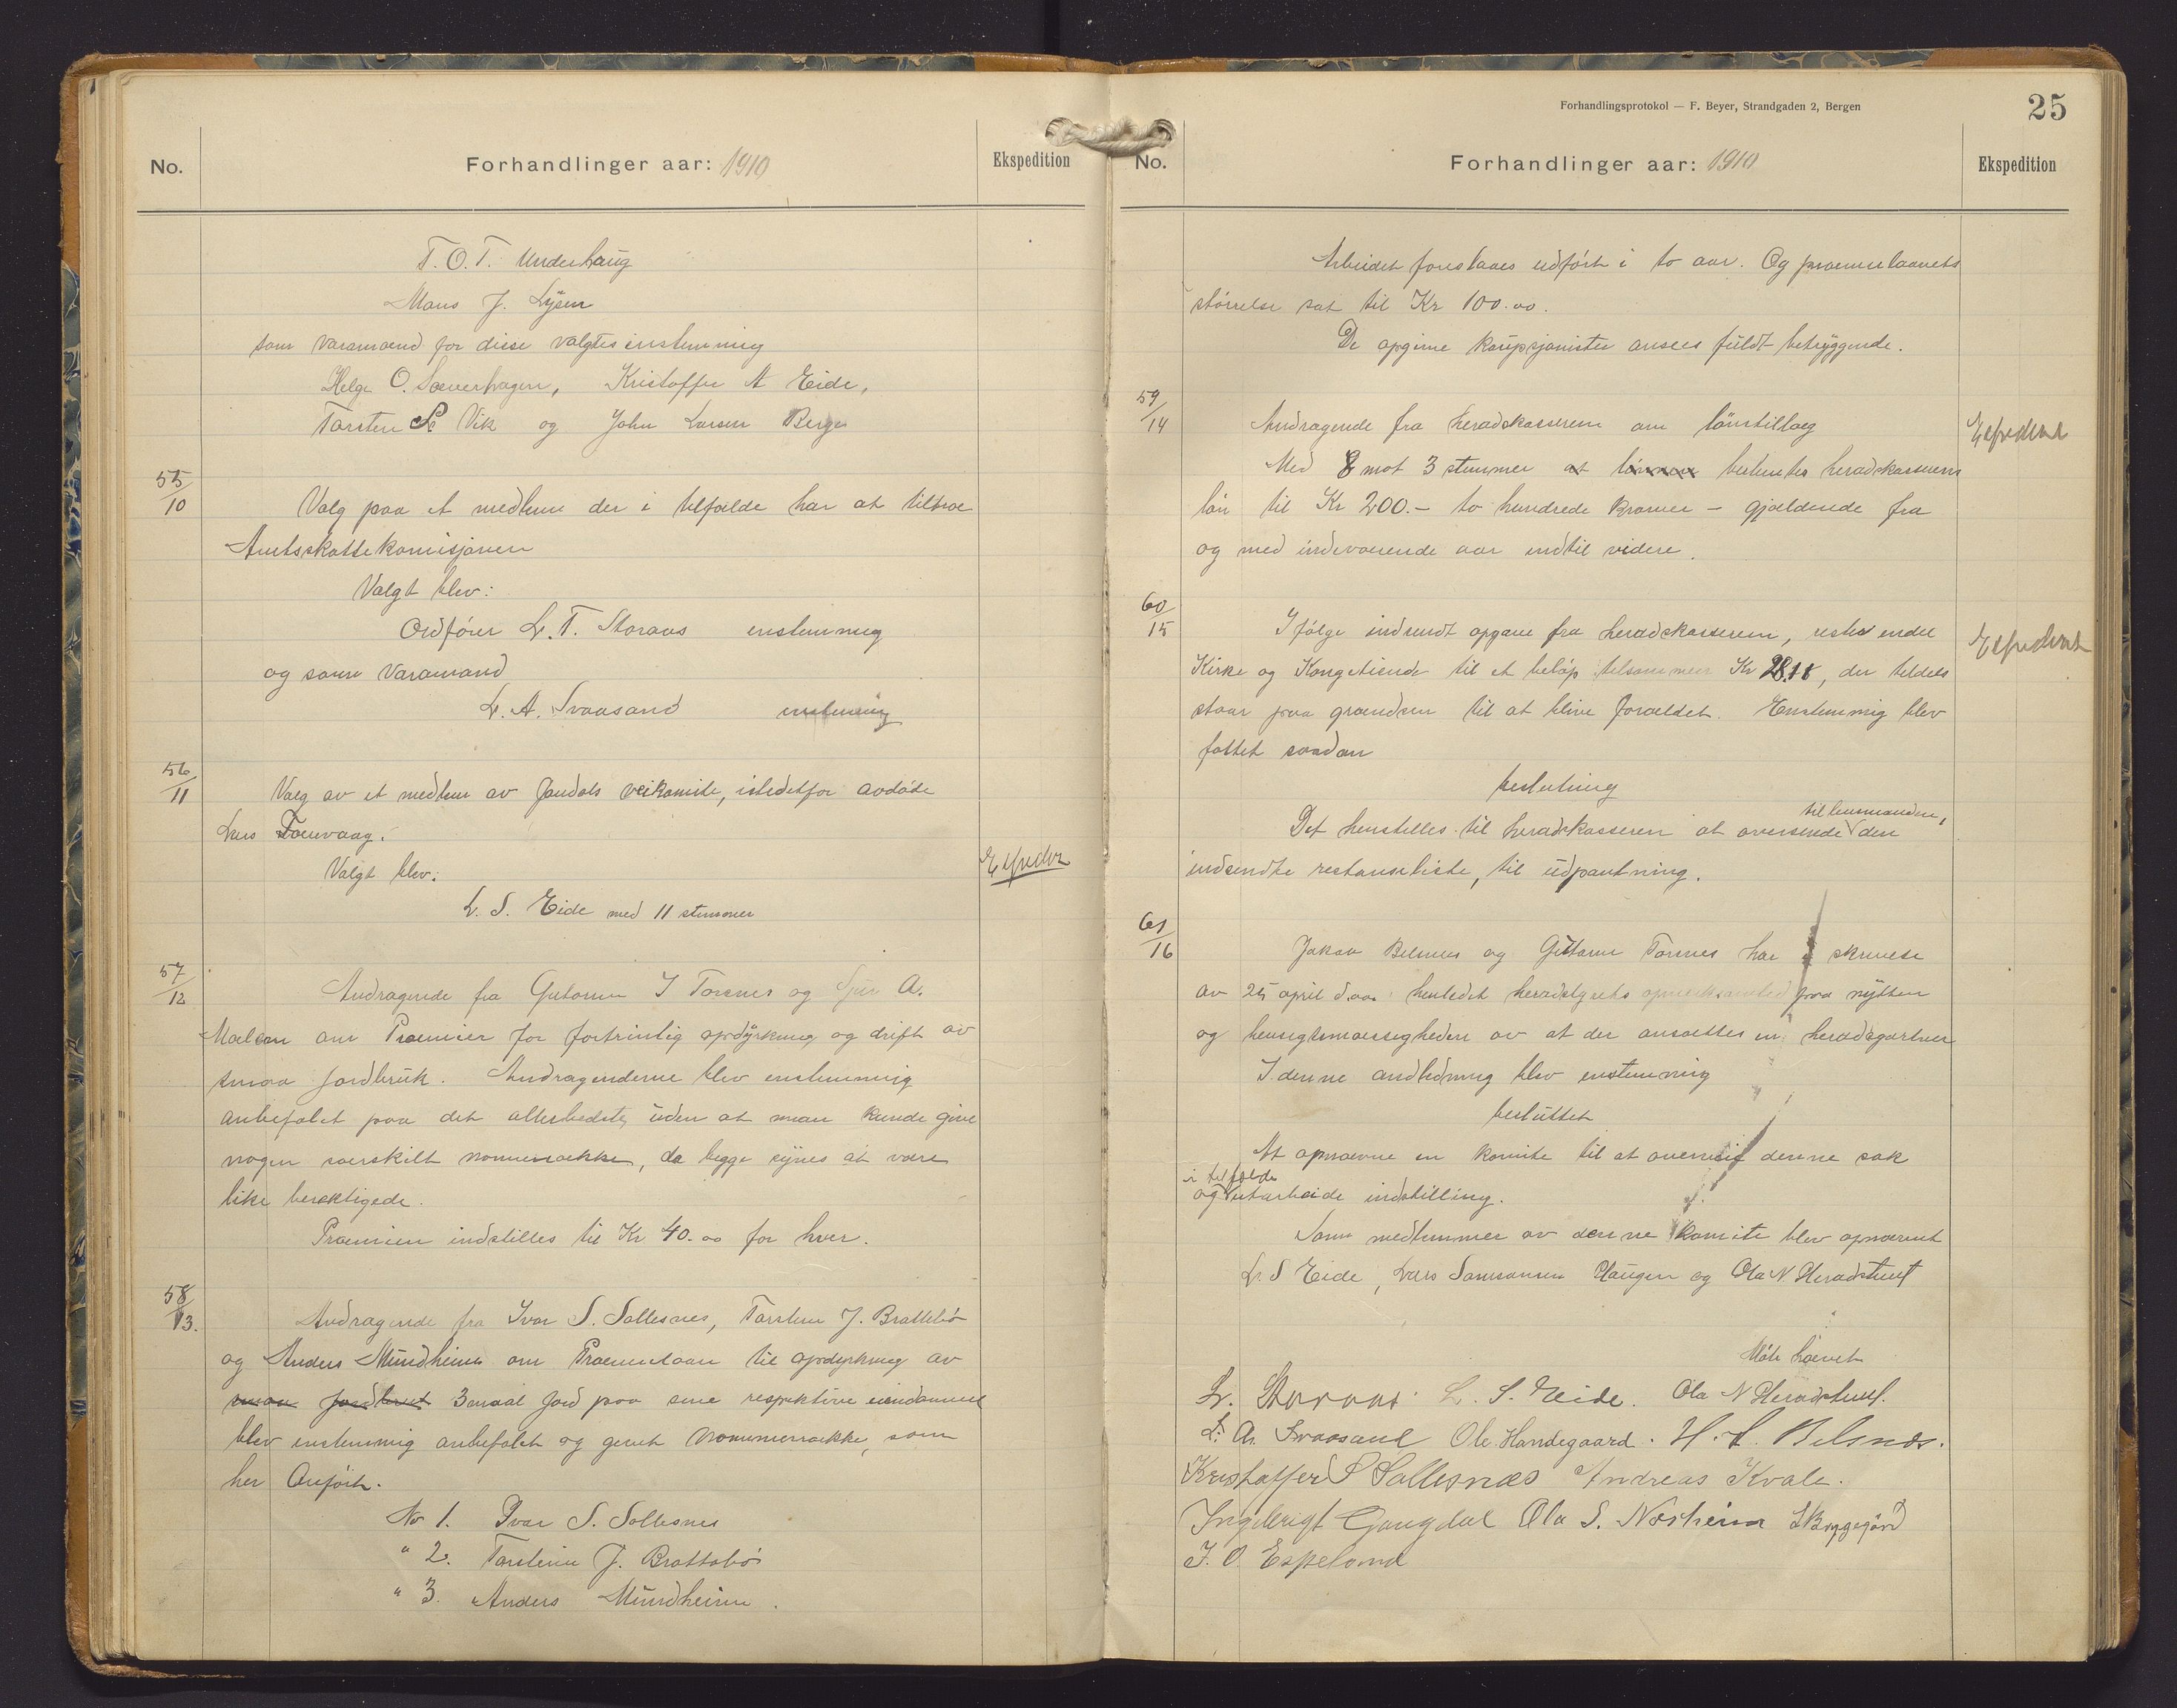 No.
Forhandlinger aar: 1910
Ekspedition
T. O. T. Underhaug
Mons J. Lysen
som varamænd for disse valgtes enstemmig
Helge O. Sæverhagen, Kristoffer A Eide,
Torsten S. Vik og John Larsen Berge
55/10
Valg paa et medlem der i tilfælde har at tiltræ
Amtsskattekomisjonen
Valgt blev:
Ordfører L. T. Storaas enstemmig
og som Varamand
L. A. Svaasand enstemmig
56/11
Valg av et medlem av Jondals veikomite, istedetfor avdøde
Lars Torvaag.
Valgt blev:
L. S. Eide med 11 stemmer
Expeder
57/12
Andragende fra Guttorm J Torsnes og A.
Mælen om Præmier for fortrinlig opdyrkning og drift av
smaa jordbruk. Andragenderne blev enstemmig
anbefalet paa det allerbedste, uden at man kunde give
nogen særskilt nommerrække, da begge synes at være
like berektigede.
Præmien indstilles til Kr 40.00 for hver.
58/13.
Andragende fra Ivar S. Sollesnes, Torstein J. Brattebø
og Anders Mundheim om Præmielaan til opdyrkning av
smaa jordbruk 3 maal jord paa sine respektive eiendomme
blev enstemmig anbefalet og givet Nommerrække, som
her Anført.
No 1. Ivar S. Sollesnes
" 2. Torstein J. Brattebø
" 3. Anders Mundheim.
Forhandlingsprotokol — F. Beyer, Strandgaden 2, Bergen
25
No.
Forhandlinger aar: 1910
Ekspedition
Arbeidet foreslaaes udført i to aar. Og præmielaanets
størrelse sat til Kr 100.00.
De opgivne kaupsjonister ansees fuldt betryggende.
59/14
Andragende fra heradskasseren om lønstillæg
Expederet
Med 8 mot 3 stemmer at lønnen bestemtes heradskasserens
løn til Kr 200.- to hundrede kroner - gjældende fra
og med indeværende aar indtil videre.
60/15
Ifølge indsendt opgave fra heradskasseren, rester endel
Expederet
Kirke og Kongetiende til et beløp tilsammen Kr 28.18, der tildels
staar paa grændsen til at blive forældet. Enstemmig blev
fattet saadan
beslutning
Det henstilles til heradskasseren at oversende til lensmanden, den
indsendte restanseliste, til udpantning.
61/16
Jakob Belsnes og Guttorm Torsnes har i skrivelse
av 25 april d.aa. henledet heradstyrets opmerksomhed paa nytten
og hensigtsmæssigheden av at der ansættes en heradsgartner
I denne andledning blev enstemmig
besluttet
At opnævne en komite til at overveie denne sak
og i tilfælde utarbeide indstilling.
Som medlemmer av denne komite blev opnævnt
L. S Eide, Lars Samsonsen Haugen og Ola N Heradstveit
Møte hævet
L. Storaas. L. S. Eide. Ola N Heradstveit.
L. A. Svaasand Ole Handegaard. H. L. Belsnes.
Kristoffer S Sollesnæs Andreas Kvale.
Ingebrigt Gangdal Ola S. Næsheim
J. O. Espeland